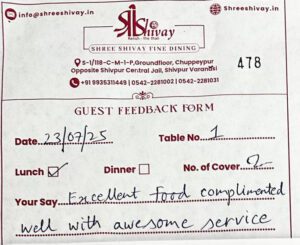 info@shreeshivay.in
Shreeshivay.in
Shivay
SHREE SHIVAY FINE DINING
S-1/118-C-M-1-P,Groundfloor, Chuppeypur
Opposite Shivpur Central Jail, Shivpur Varanasi
+91 9935311449 | 0542-2281002 | 0542-2281031
478
GUEST FEEDBACK FORM
Date 23/07/25 Table No. 1
Lunch Dinner No. of Cover 2
Your Say Excellent food complimented
well with awesome service